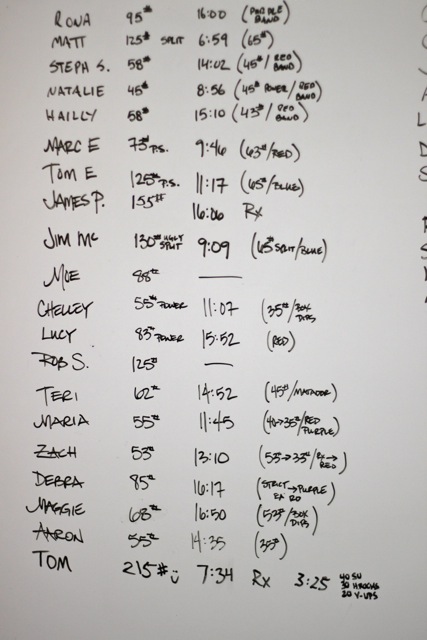 RONA 95# 16:00 (PURPLE BAND)
MATT 125# SPLIT 6:59 (65#)
STEPH S. 58# 14:02 (45#/RED BAND)
NATALIE 45# 8:56 (45# POWER/RED BAND)
HAILLY 58# 15:10 (43#/RED BAND)
MARC E 73# P.S. 9:46 (63#/RED)
TOM E 125# P.S. 11:17 (65#/BLUE)
JAMES P. 155# 16:06 Rx
JIM MC 130# UGLY SPLIT 9:09 (65# SPLIT/BLUE)
MOE 88# —
CHELLEY 55# POWER 11:07 (35#/BOX DIPS)
LUCY 83# POWER 15:52 (RED)
ROB S. 125# —
TERI 62# 14:52 (45#/MATADOR)
MARIA 55# 11:45 (40→35#/RED PURPLE)
ZACH 53# 13:10 (53#→33#/Rx→RED)
DEBRA 85# 16:17 (STRICT→PURPLE)
MAGGIE 68# 16:50 (53#/BOX DIPS)
AARON 55# 14:35 (35#)
TOM 215# 7:34 Rx 3:25 40 SU
20 V-UPS